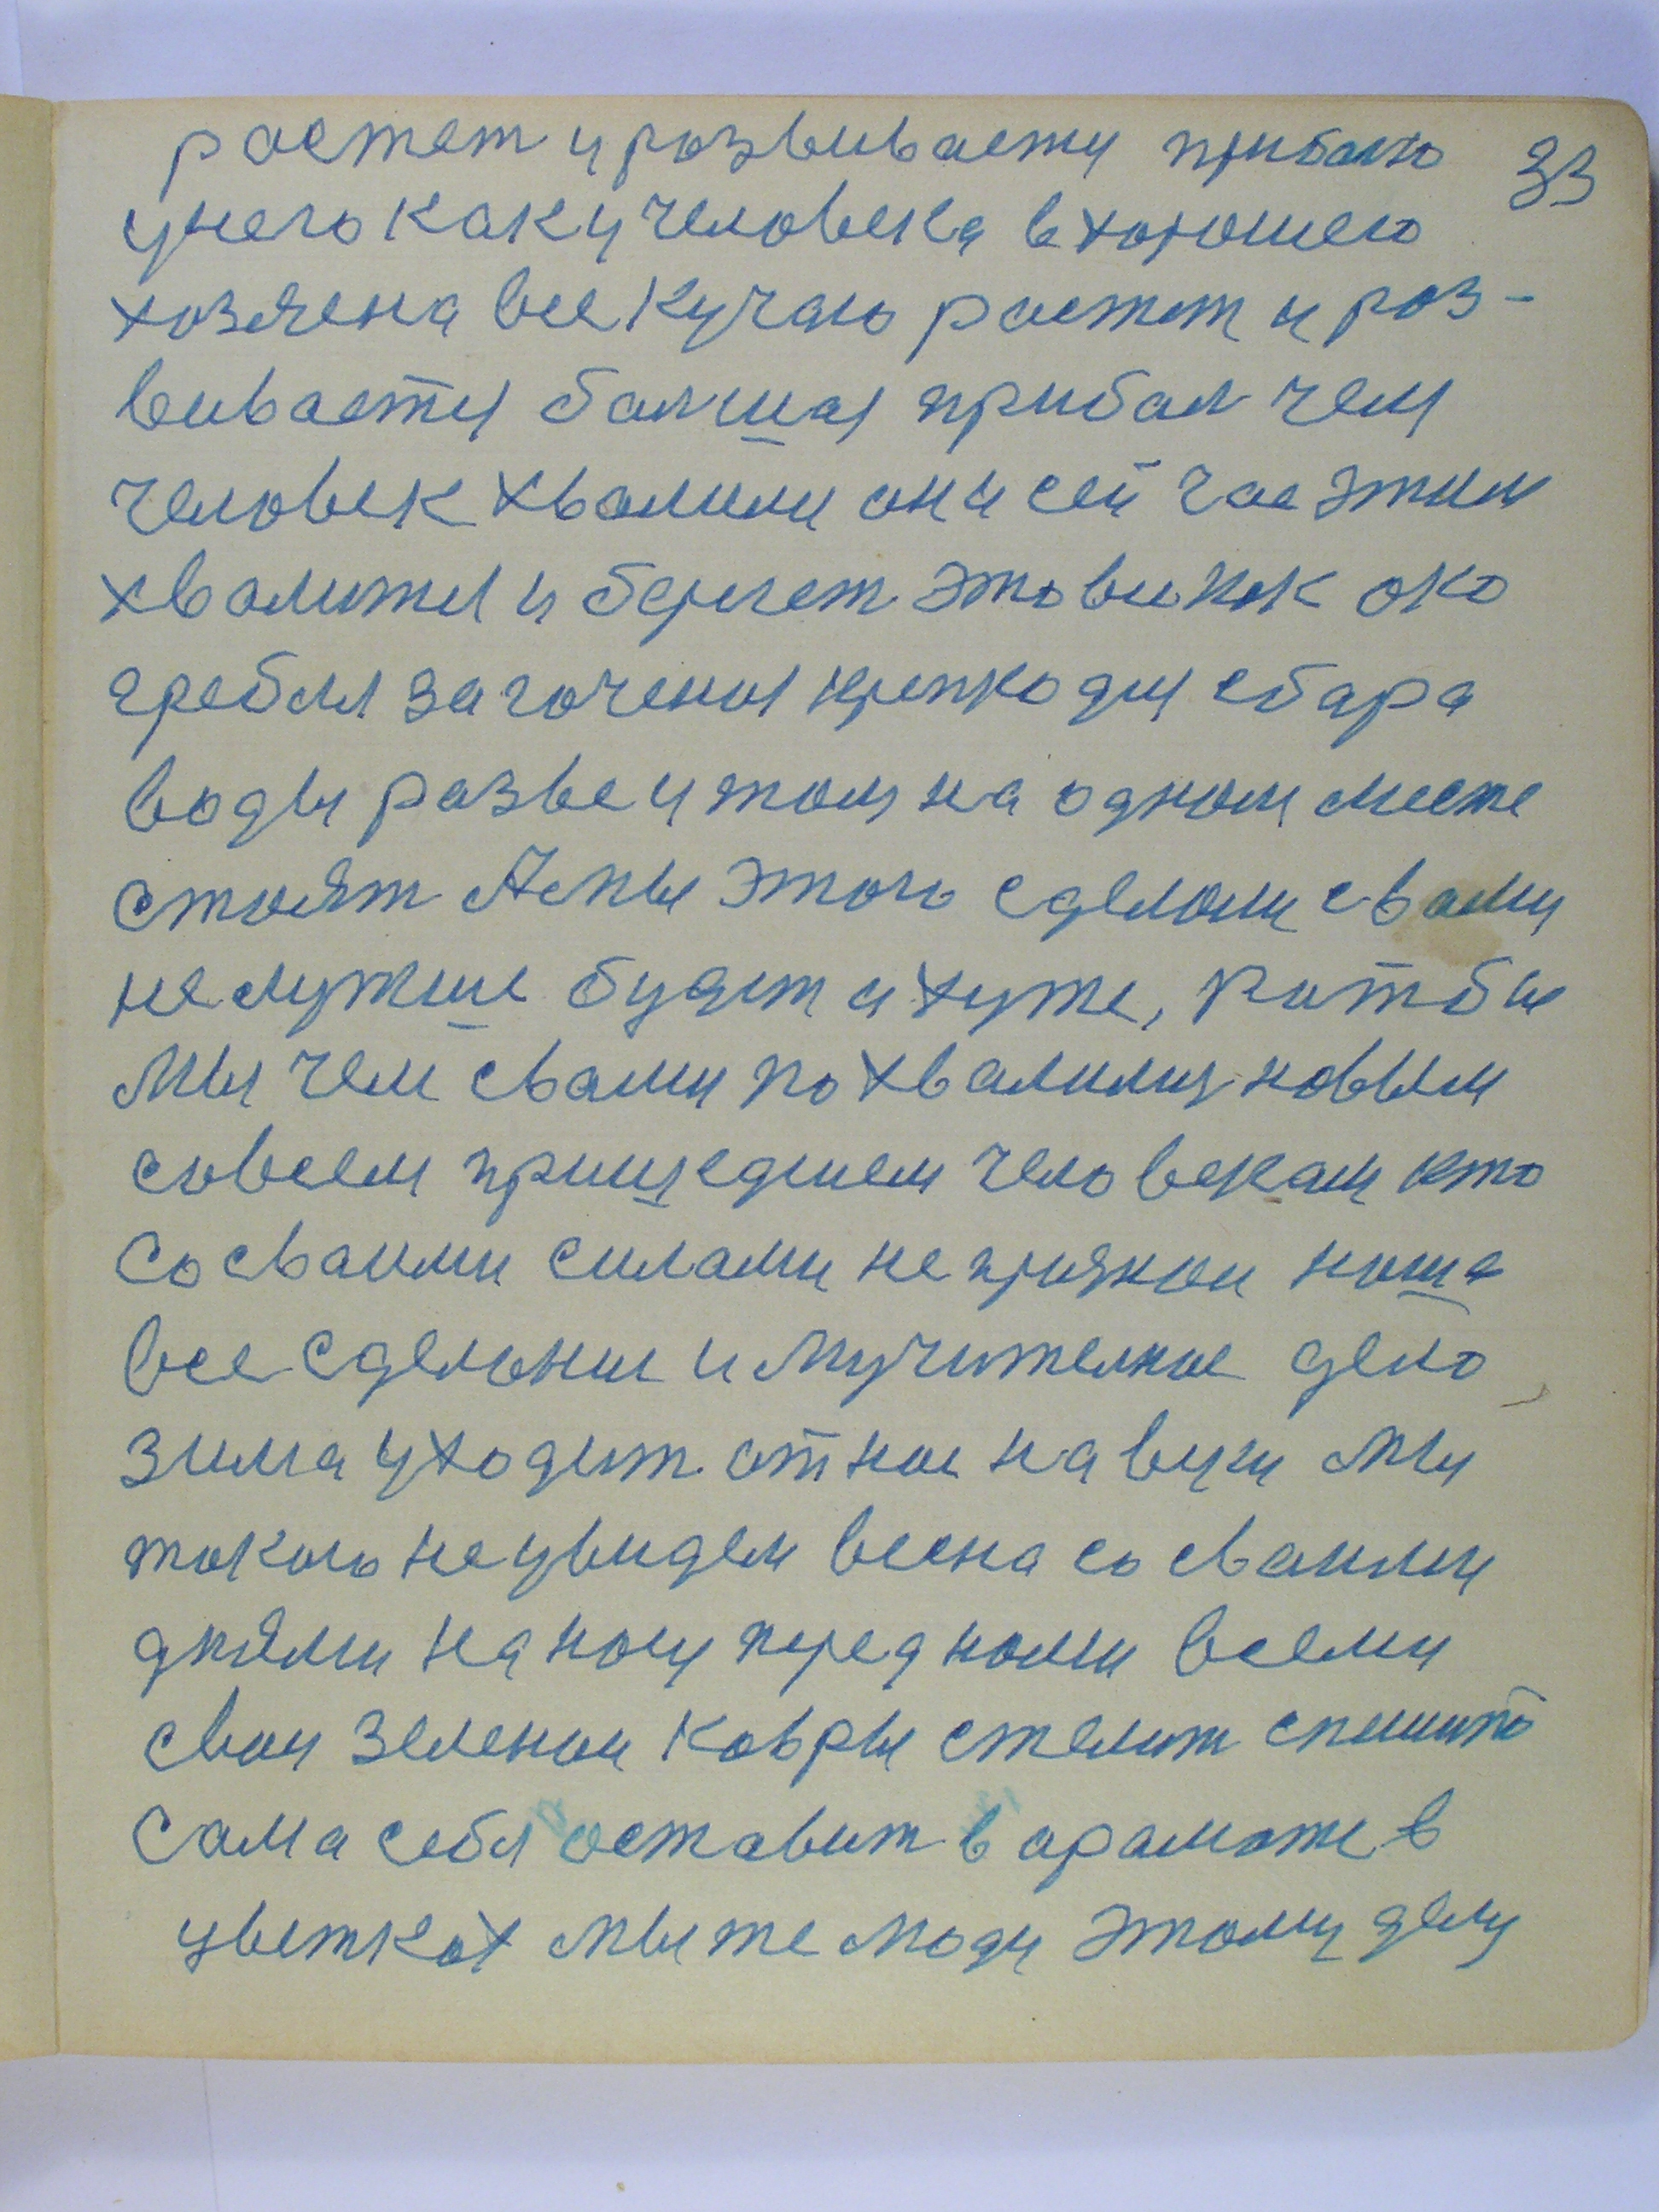 растет и развивается прибало 33
унего как у человека в хорошего
хозяена все кучаю растет и роз-
вивается балшая прибал чем
человек хвалили он и сей час этим
хвалится и бережет это все как око
гребля загочена крепко для сбара
воды разве и там на одном месте
стоят А мы этого сделали свами
не лутше будет а хуже, хотбы
мы чем свами похвалились новым
совсем пришедшем человекам кто
со сваими силами не признои наша
все сделоное и мучителное дело
зима уходит от нас на веки мы
такого не увидем весна со сваими
днями на носу перед нами всеми
свои зеленои ковры стелит спишит
сама себя оставит в арамате в
цветках мы же люди этому делу